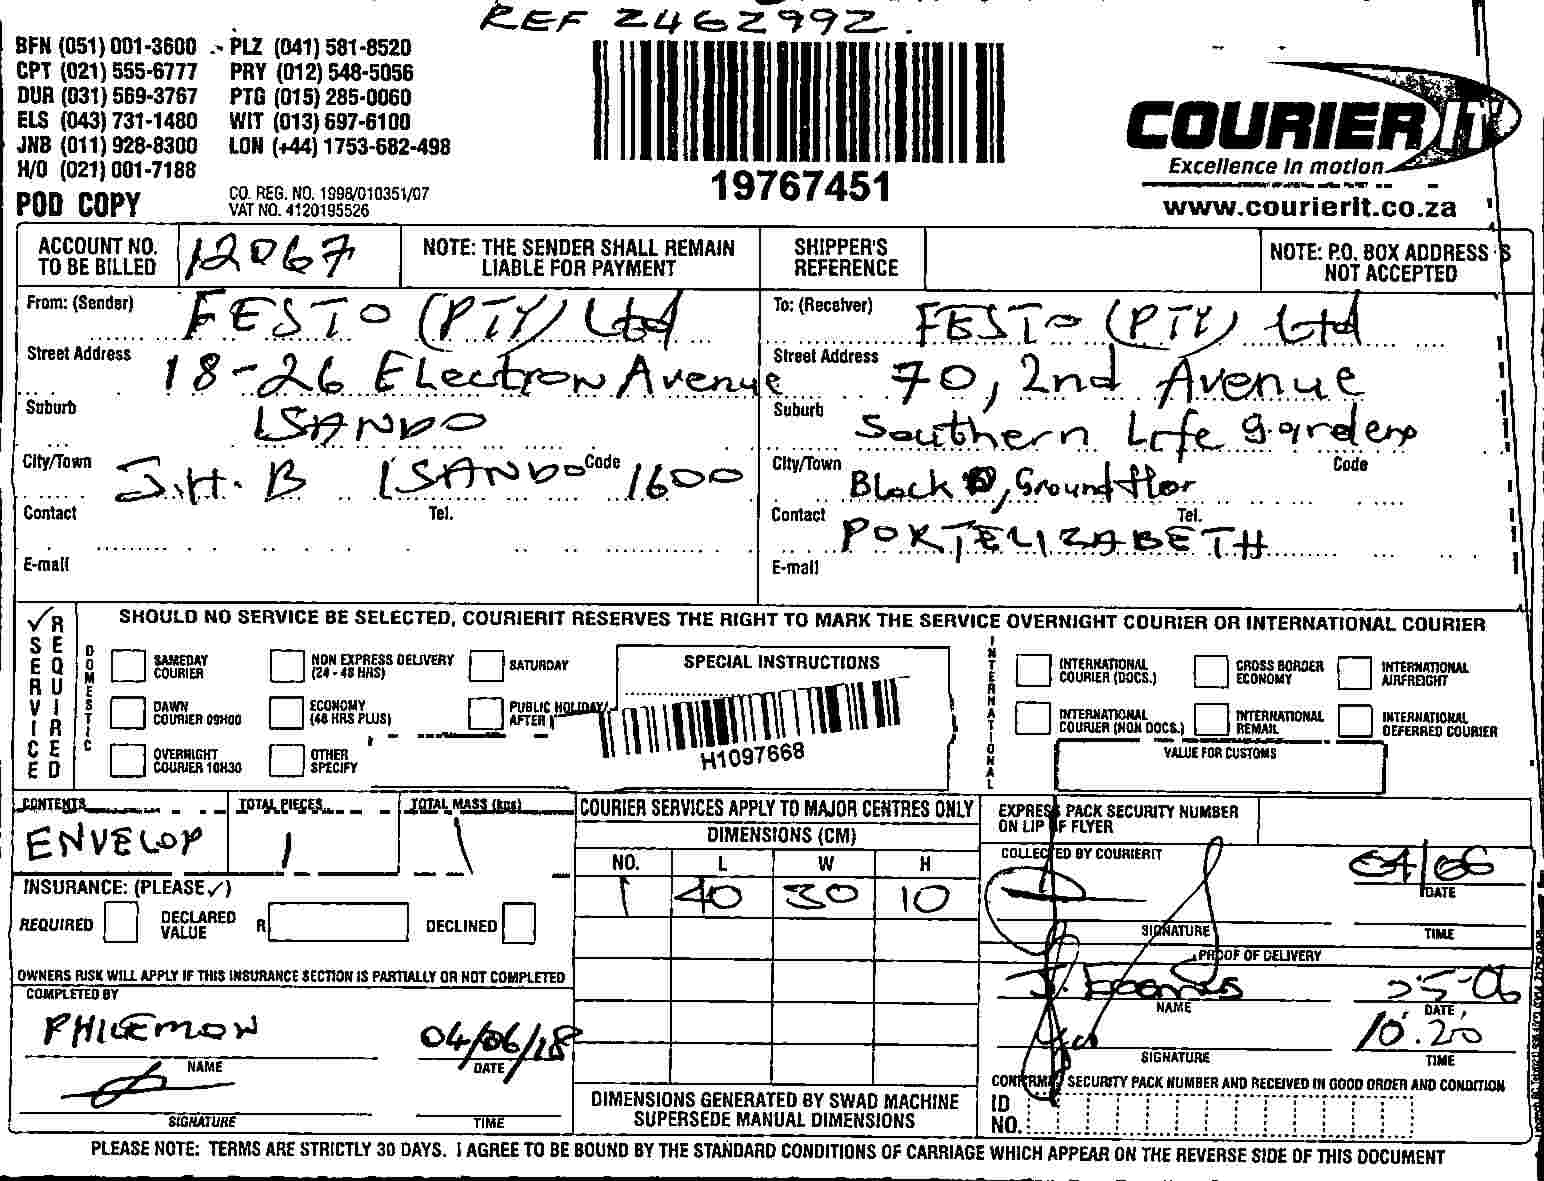 REF 2462992.
BFN (051) 001-3600 PLZ (041) 581-8520
CPT (021) 555-6777 PRY (012) 548-5056
DUR (031) 569-3767 PTG (015) 285-0060
ELS (043) 731-1480 WIT (013) 697-6100
JNB (011) 928-8300 LON (+44) 1753-682-498
H/O (021) 001-7188
POD COPY
CO. REG. NO. 1998/010351/07
VAT NO. 4120195526
19767451
COURIER IT
Excellence in motion
www.courierit.co.za
ACCOUNT NO. TO BE BILLED 12067
NOTE: THE SENDER SHALL REMAIN LIABLE FOR PAYMENT
SHIPPER'S REFERENCE
NOTE: P.O. BOX ADDRESS IS NOT ACCEPTED
From: (Sender) FESTO (PTY) Ltd
Street Address 18-26 Electron Avenue
Suburb ISANDO
City/Town J.H.B ISANDO Code 1600
Contact Tel.
E-mail
To: (Receiver) FESTO (PTY) Ltd
Street Address 70, 2nd Avenue
Suburb Southern Life gardens
City/Town Block Ground flor Code
Contact PORTELIZABETH Tel.
E-mail
SERVICE REQUIRED
SHOULD NO SERVICE BE SELECTED, COURIERIT RESERVES THE RIGHT TO MARK THE SERVICE OVERNIGHT COURIER OR INTERNATIONAL COURIER
DOMESTIC
SAMEDAY COURIER
NON EXPRESS DELIVERY (24 - 48 HRS)
SATURDAY
DAWN COURIER 09H00
ECONOMY (48 HRS PLUS)
PUBLIC HOLIDAY/ AFTER
OVERNIGHT COURIER 10H30
OTHER SPECIFY
SPECIAL INSTRUCTIONS
H1097668
INTERNATIONAL
INTERNATIONAL COURIER (DOCS.)
CROSS BORDER ECONOMY
INTERNATIONAL AIRFREIGHT
INTERNATIONAL COURIER (NON DOCS.)
INTERNATIONAL REMAIL
INTERNATIONAL DEFERRED COURIER
VALUE FOR CUSTOMS
CONTENTS ENVELOP
TOTAL PIECES 1
TOTAL MASS (kgs) 1
INSURANCE: (PLEASE ✓)
REQUIRED DECLARED VALUE R DECLINED
OWNERS RISK WILL APPLY IF THIS INSURANCE SECTION IS PARTIALLY OR NOT COMPLETED
COMPLETED BY
PHILEMON 04/06/18
NAME DATE
SIGNATURE TIME
COURIER SERVICES APPLY TO MAJOR CENTRES ONLY
DIMENSIONS (CM)
NO. L W H
1 40 30 10
DIMENSIONS GENERATED BY SWAD MACHINE SUPERSEDE MANUAL DIMENSIONS
EXPRESS PACK SECURITY NUMBER ON LIP OF FLYER
COLLECTED BY COURIERIT
04/06
DATE
SIGNATURE TIME
PROOF OF DELIVERY
J.
NAME DATE
10.20
SIGNATURE TIME
CONFIRM SECURITY PACK NUMBER AND RECEIVED IN GOOD ORDER AND CONDITION
ID NO.
PLEASE NOTE: TERMS ARE STRICTLY 30 DAYS. I AGREE TO BE BOUND BY THE STANDARD CONDITIONS OF CARRIAGE WHICH APPEAR ON THE REVERSE SIDE OF THIS DOCUMENT